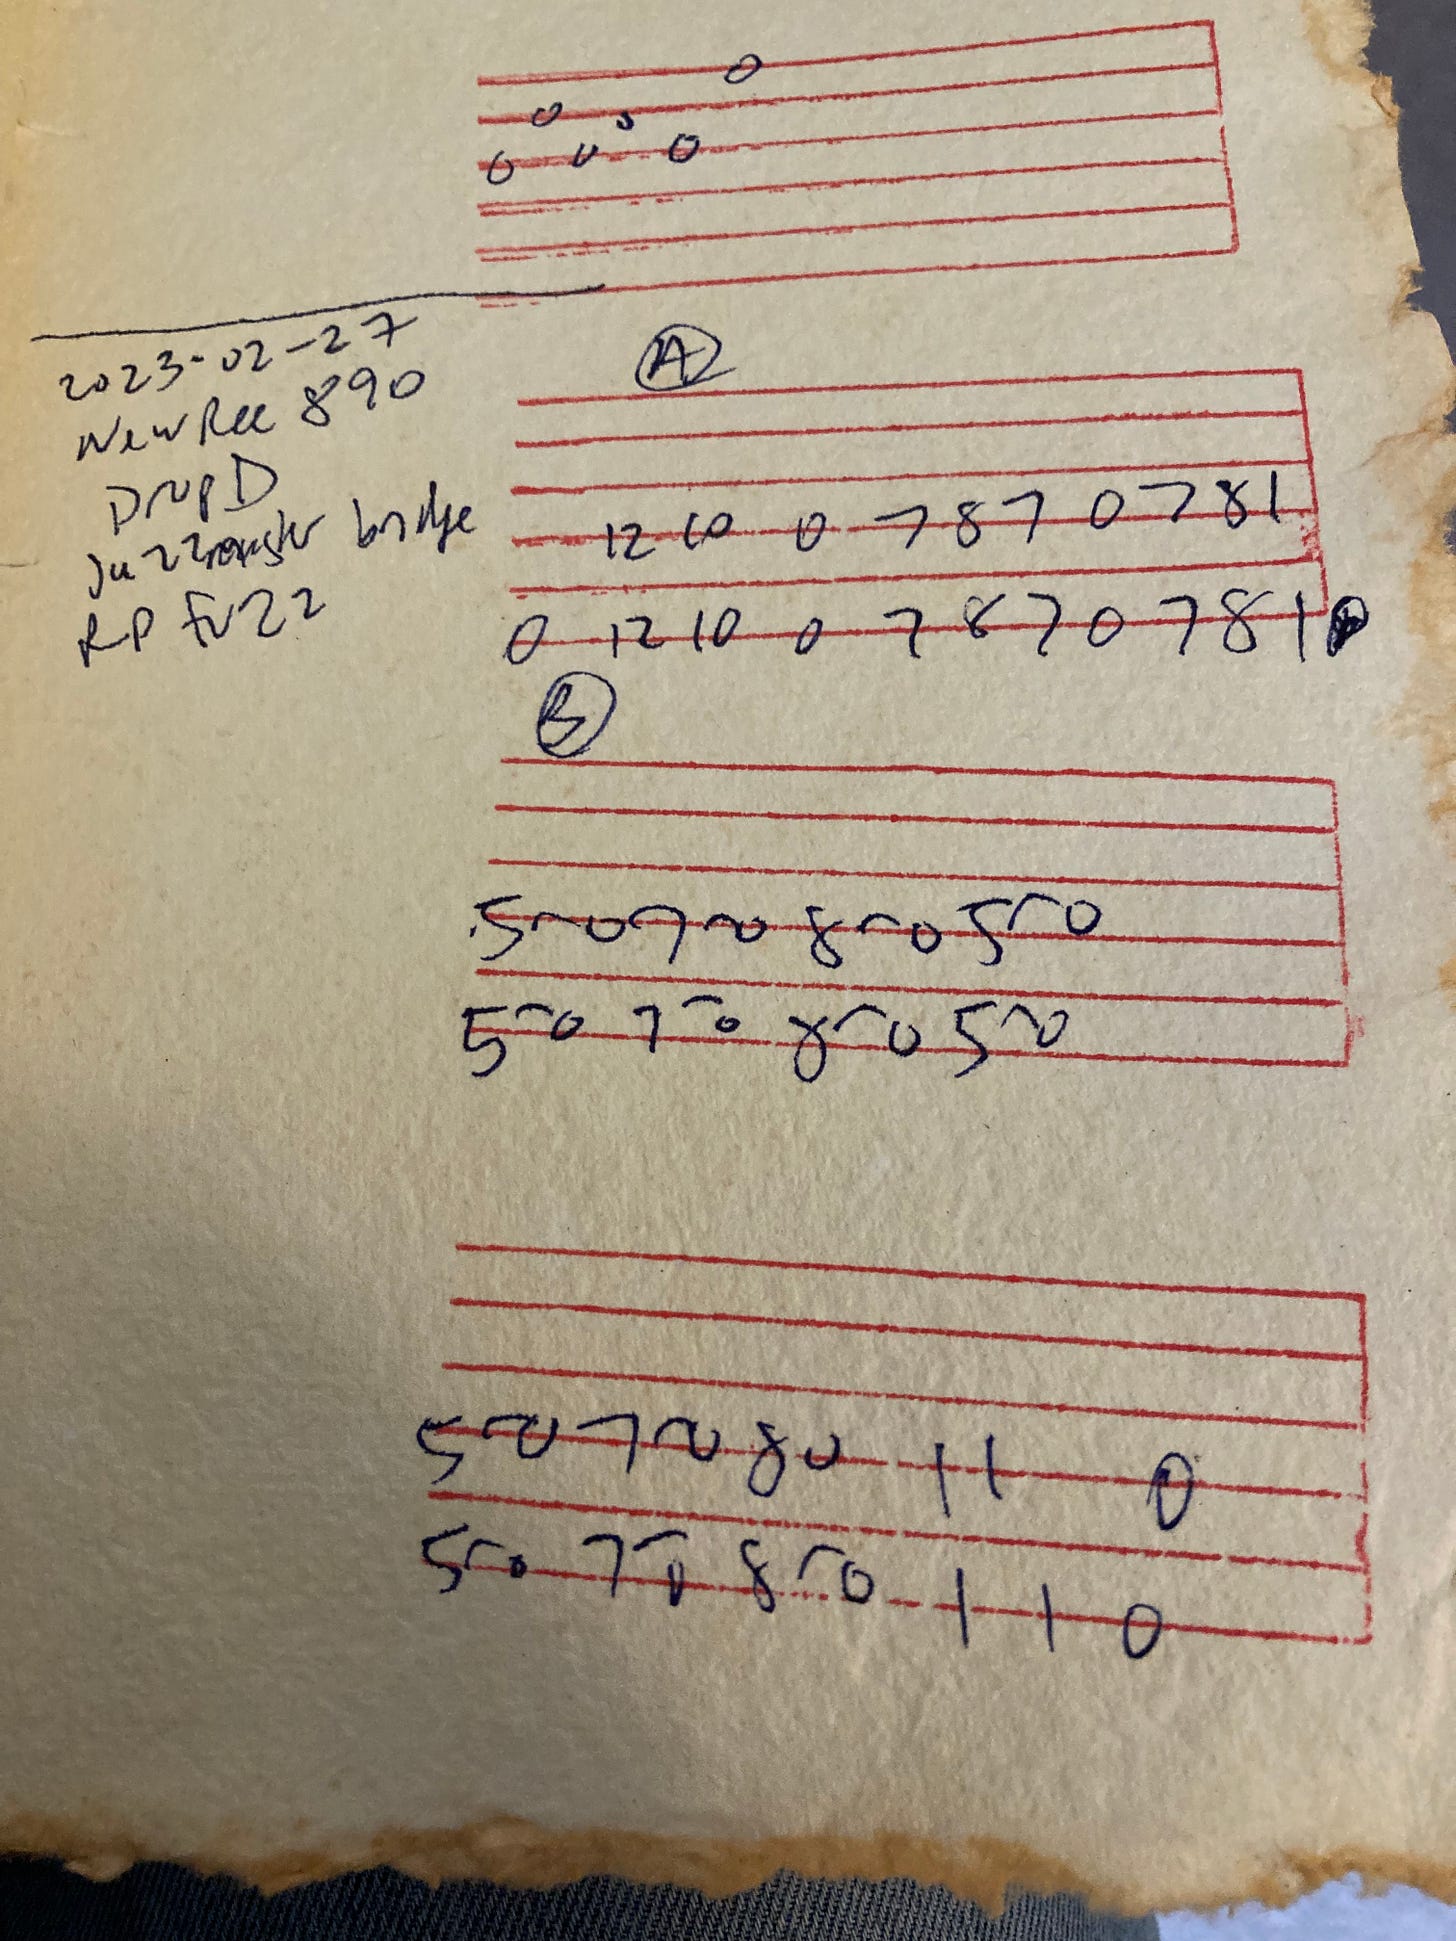 0
0 5
0 0 0
2023-02-27
New Rec 890
Drop D
Jazzmaster bridge
RP Fuzz
A
12 10 0 7 8 7 0 7 8 1
0 12 10 0 7 8 7 0 7 8 1
B
5⁀0 7⁀0 8⁀0 5⁀0
5⁀0 7⁀0 8⁀0 5⁀0
5⁀0 7⁀0 8 0 1 1 0
5⁀0 7⁀0 8⁀0 1 1 0